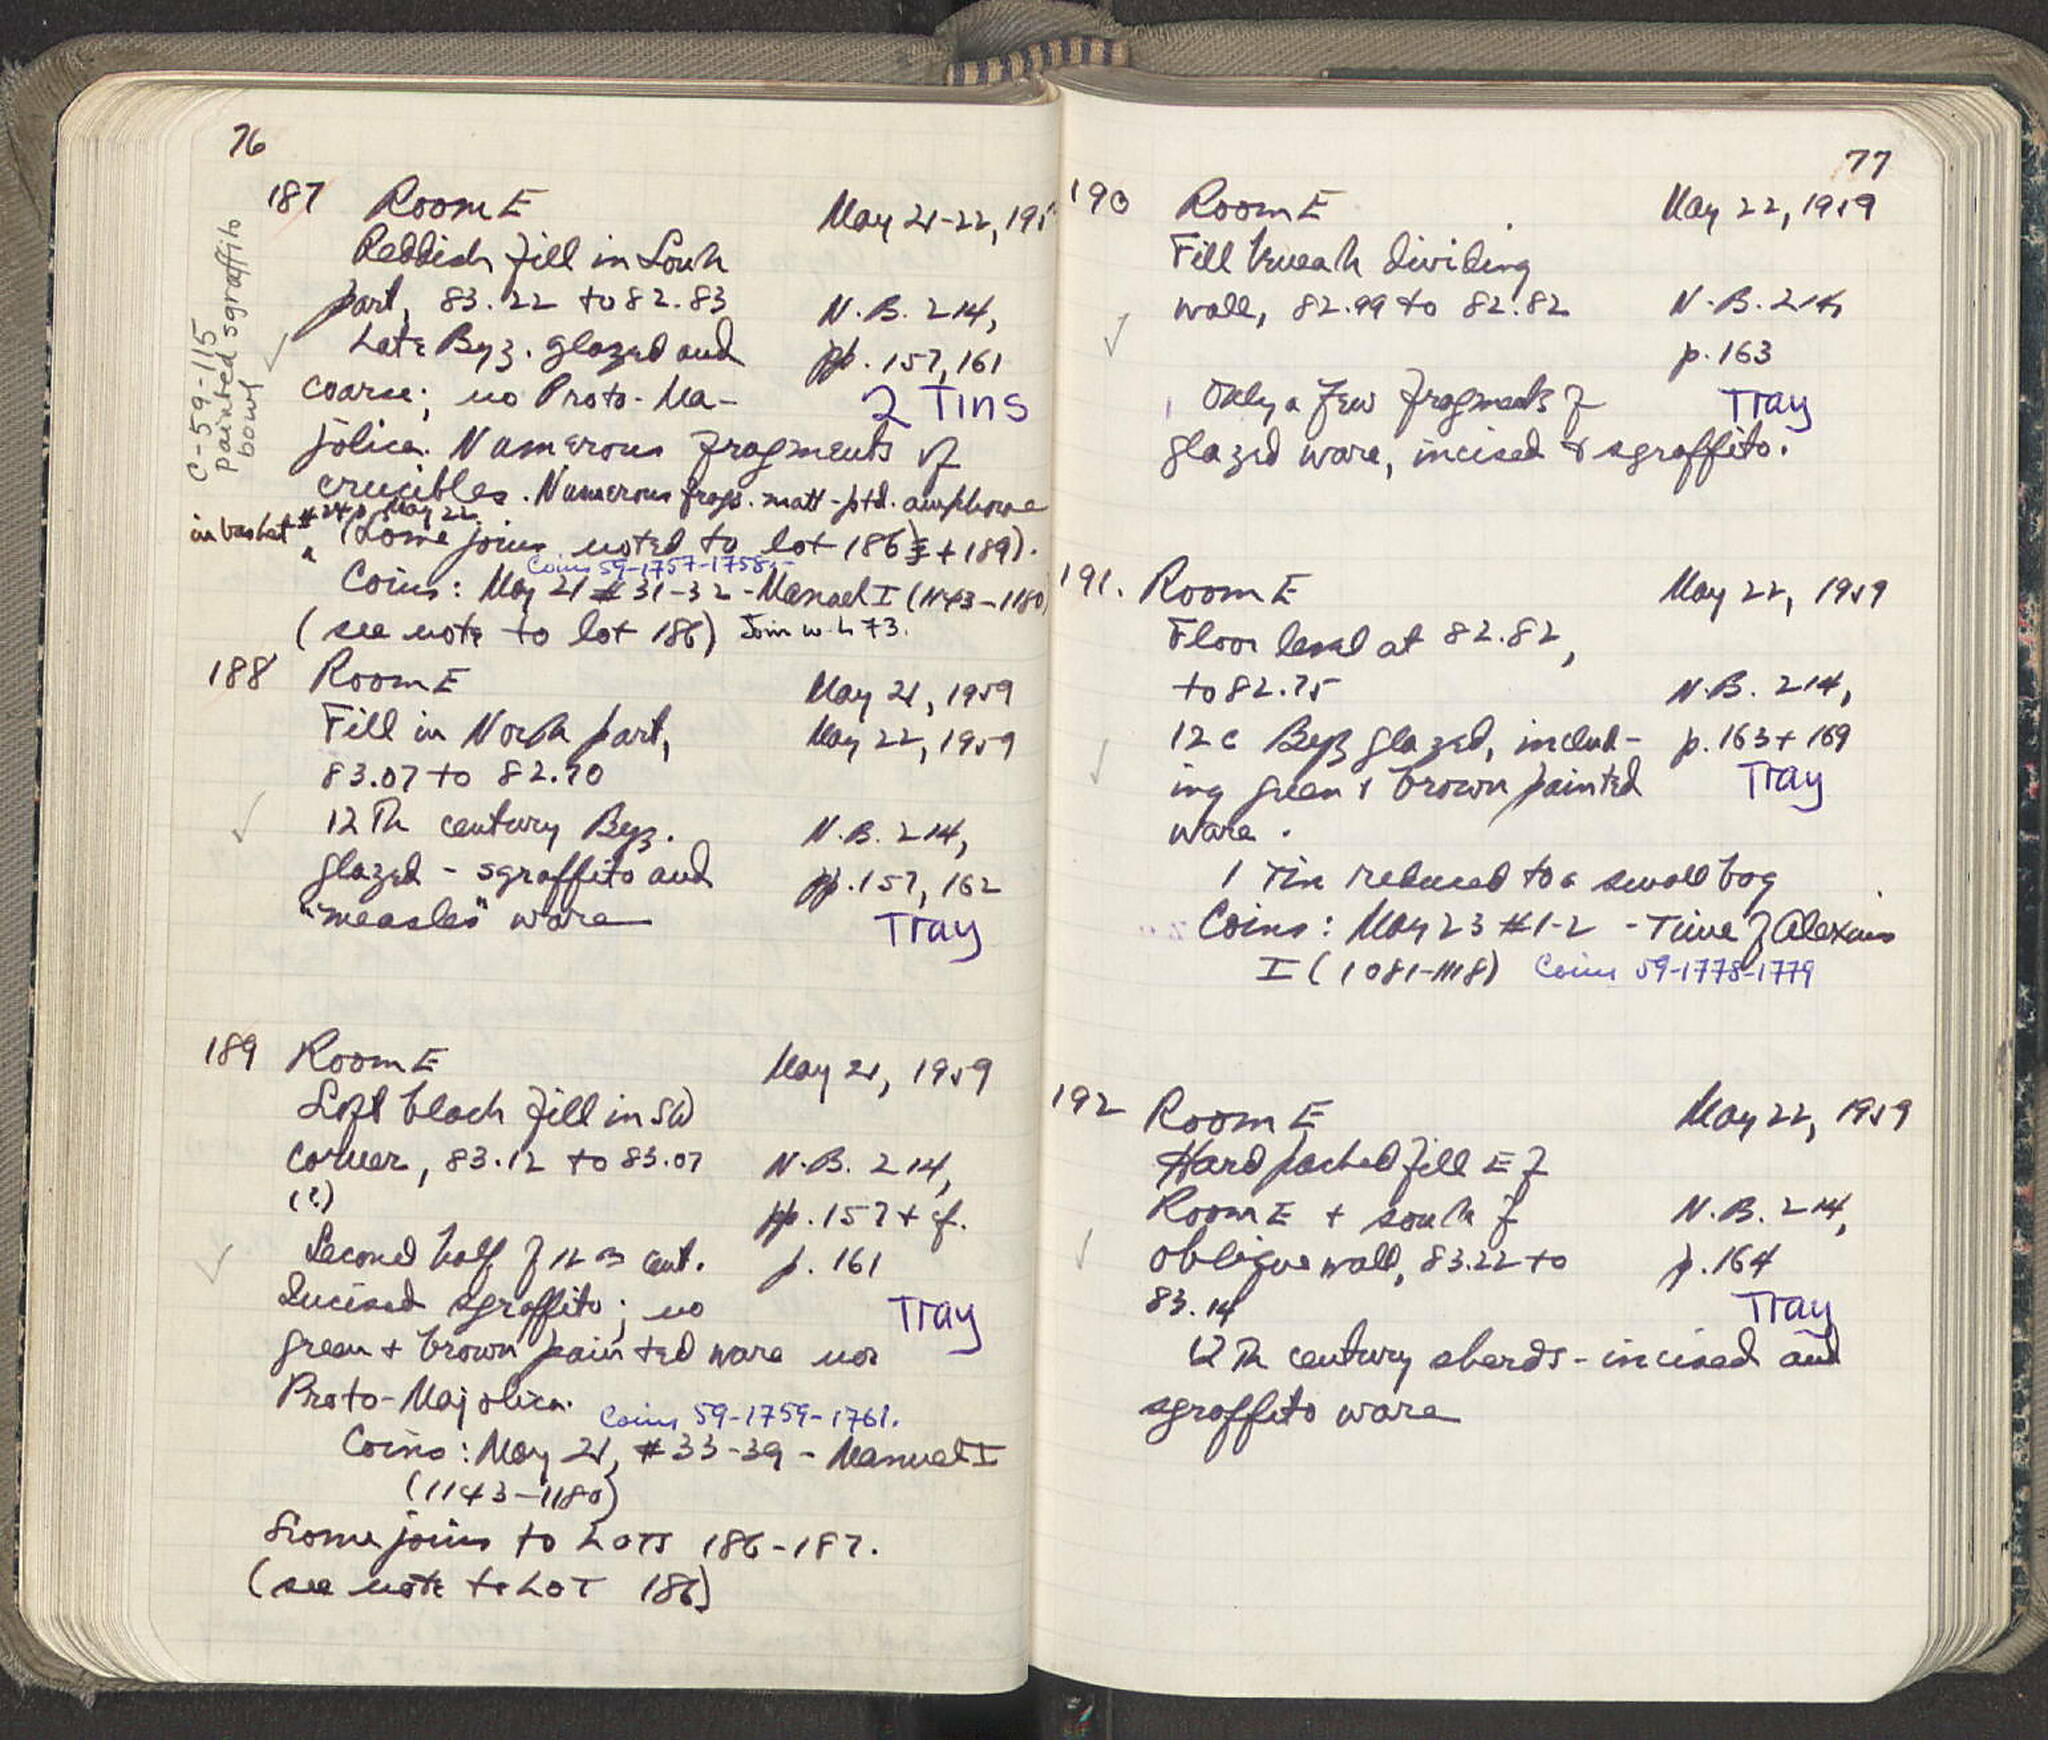 76
C-59-115
painted sgraffito
bowl
187 Room E May 21-22, 195
Reddish fill in South
part, 83.22 to 82.83 N.B. 214,
Late Byz. glazed and pp. 157, 161
coarse; no Proto-Ma- 2 Tins
jolica. Numerous fragments of
crucibles. Numerous frags. matt-ptd. amphorae
in basket #24, May 22
(Some joins noted to lot 186 + 189).
Coins 59-1757-1758
Coins: May 21 #31-32 - Manuel I (1143-1180)
(see note to lot 186) Join w. L 73.
188 Room E May 21, 1959
Fill in North part, May 22, 1959
83.07 to 82.70
12th century Byz. N.B. 214,
glazed - sgraffito and pp. 157, 162
"measles" ware Tray
189 Room E May 21, 1959
Soft black fill in SW
corner, 83.12 to 83.07 N.B. 214,
(?) pp. 157 + cf.
Second half of 12th cent. p. 161
Incised sgraffito; no Tray
green + brown painted ware nor
Proto-Majolica. Coins 59-1759-1761.
Coins: May 21, #33-39 - Manuel I
(1143-1180)
Some joins to Lots 186-187.
(see note to Lot 186)
77
190 Room E May 22, 1959
Fill beneath dividing
wall, 82.99 to 82.82 N.B. 214,
p. 163
Only a few fragments of Tray
glazed ware, incised & sgraffito.
191. Room E May 22, 1959
Floor level at 82.82,
to 82.75 N.B. 214,
12 c Byz glazed, includ- p. 163 + 169
ing green & brown painted Tray
ware.
1 Tin reduced to a small bag
Coins: May 23 #1-2 - Time of Alexius
I (1081-1118) Coins 59-1778-1779
192 Room E May 22, 1959
Hard packed fill E of
Room E + south of N.B. 214,
oblique wall, 83.22 to p. 164
83.14 Tray
12th century sherds - incised and
sgraffito ware